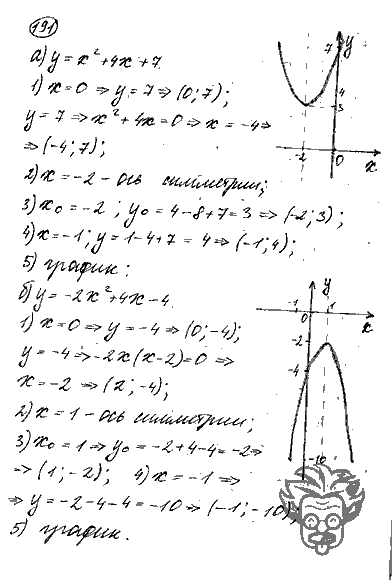 191
а) y = x² + 4x + 7
1) x = 0 ⇒ y = 7 ⇒ (0; 7);
y = 7 ⇒ x² + 4x = 0 ⇒ x = -4 ⇒
⇒ (-4; 7);
2) x = -2 - ось симметрии;
3) x₀ = -2; y₀ = 4 - 8 + 7 = 3 ⇒ (-2; 3);
4) x = -1; y = 1 - 4 + 7 = 4 ⇒ (-1; 4);
5) график:
y
7
4
3
-2
0
x
б) y = -2x² + 4x - 4
1) x = 0 ⇒ y = -4 ⇒ (0; -4);
y = -4 ⇒ -2x(x - 2) = 0 ⇒
x = -2 ⇒ (2; -4);
2) x = 1 - ось симметрии;
3) x₀ = 1 ⇒ y₀ = -2 + 4 - 4 = -2 ⇒
⇒ (1; -2); 4) x = -1 ⇒
⇒ y = -2 - 4 - 4 = -10 ⇒ (-1; -10);
5) график.
y
-1
0
1
x
-2
-4
-10